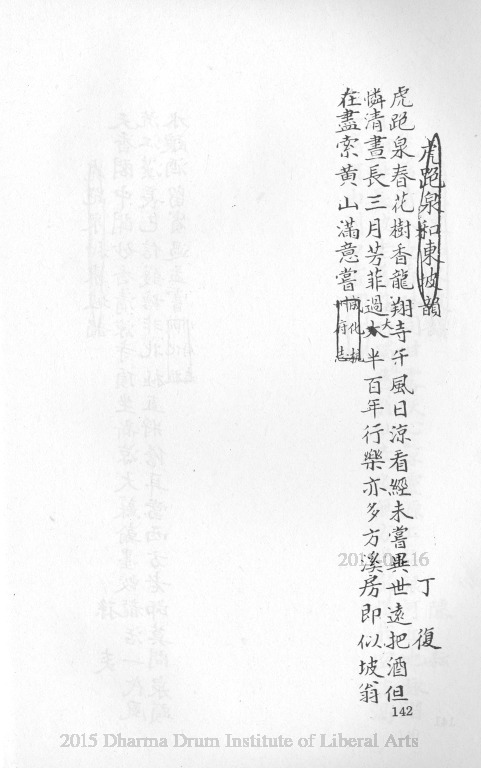 虎跑泉和東坡韻 丁復
虎跑泉春花樹香龍翔寺午風日涼看經未嘗異世遠把酒但
憐清晝長三月芳菲過大半百年行樂亦多方溪房即似坡翁
在盡索黃山滿意嘗 成化杭
州府志
142
2015 Dharma Drum Institute of Liberal Arts